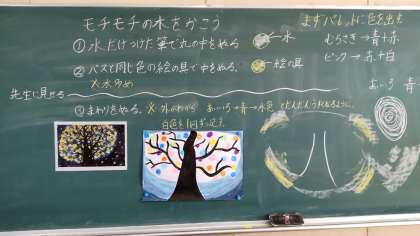 モチモチの木をかこう
①水だけつけた筆で丸の中をぬる。
水
②パスと同じ色の絵の具で中をぬる。
絵の具
※水少なめ
先生に見せる
③まわりをぬる。※外のわから あいいろ→青→水色 でだんだんうすくなるように。
白色を1回ずつ足す
まずパレットに色を出す
むらさき→青+赤
ピンク→赤+白
あいいろ 青